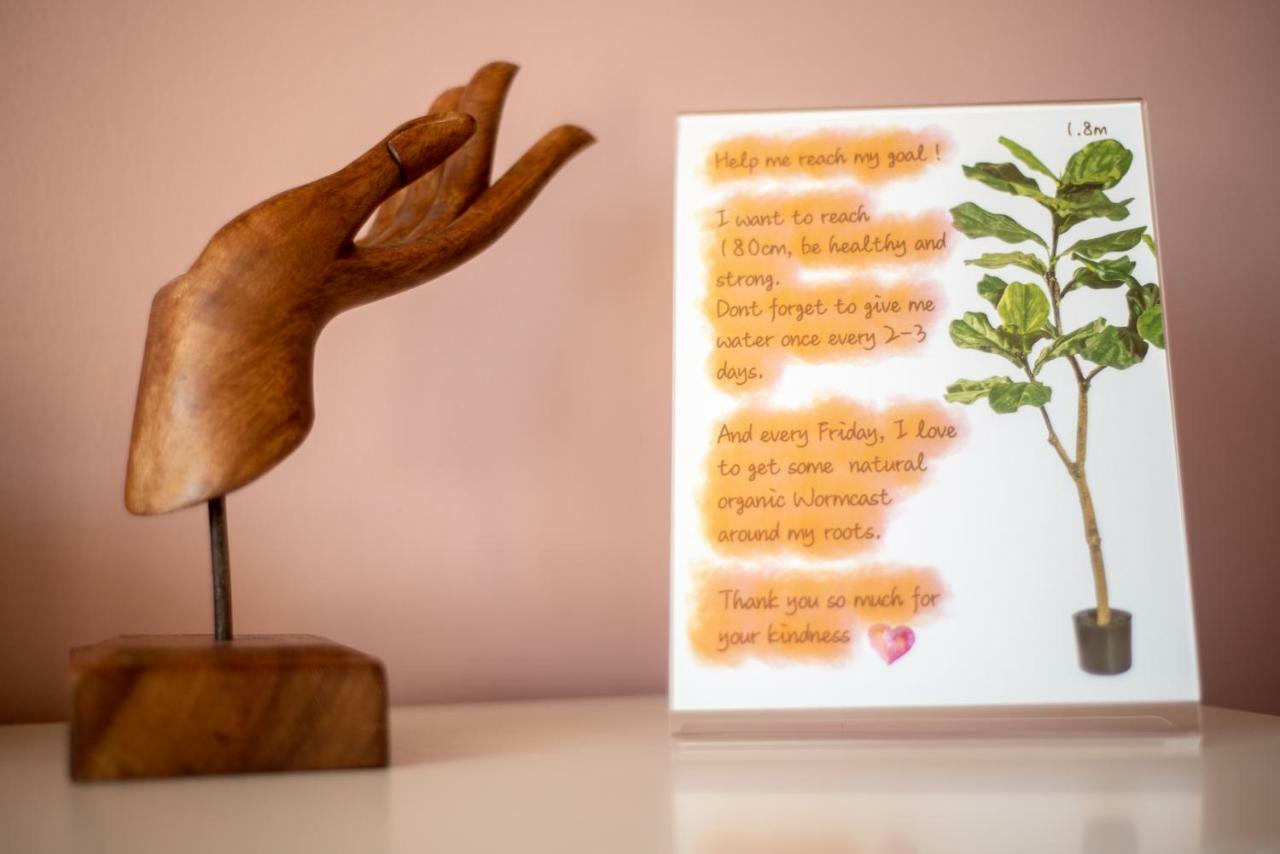 1.8m
Help me reach my goal !
I want to reach
180cm, be healthy and
strong.
Dont forget to give me
water once every 2-3
days.
And every Friday, I love
to get some natural
organic Wormcast
around my roots.
Thank you so much for
your kindness